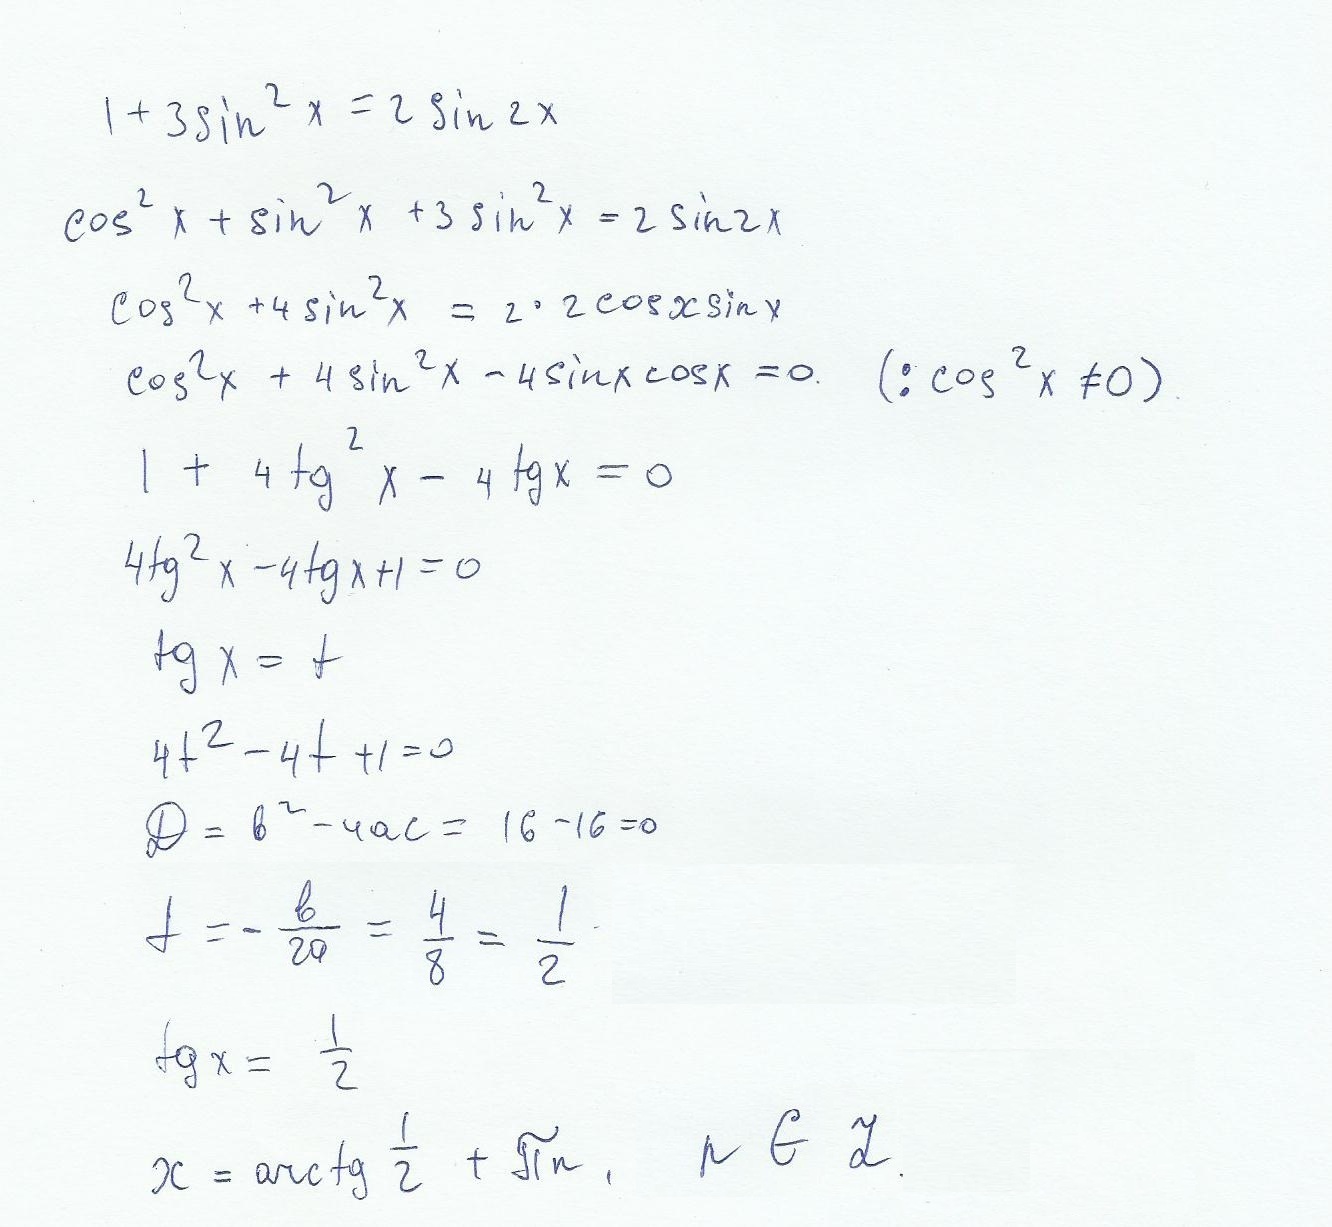 1 + 3 sin² x = 2 sin 2x
cos² x + sin² x + 3 sin² x = 2 sin 2x
cos² x + 4 sin² x = 2 · 2 cos x sin x
cos² x + 4 sin² x - 4 sin x cos x = 0. (: cos² x ≠ 0).
1 + 4 tg² x - 4 tg x = 0
4 tg² x - 4 tg x + 1 = 0
tg x = t
4t² - 4t + 1 = 0
D = b² - 4ac = 16 - 16 = 0
t = - b/2a = 4/8 = 1/2
tg x = 1/2
x = arctg 1/2 + πn, n ∈ Z.